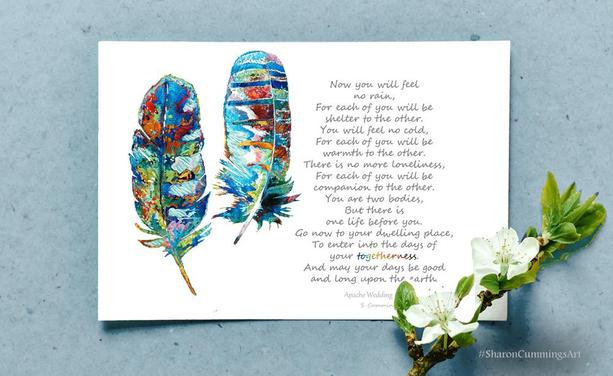 Now you will feel
no rain,
For each of you will be
shelter to the other.
You will feel no cold,
For each of you will be
warmth to the other.
There is no more loneliness,
For each of you will be
companion to the other.
You are two bodies,
But there is
one life before you.
Go now to your dwelling place,
To enter into the days of
your togetherness.
And may your days be good
and long upon the earth.
Apache Wedding
#SharonCummingsArt